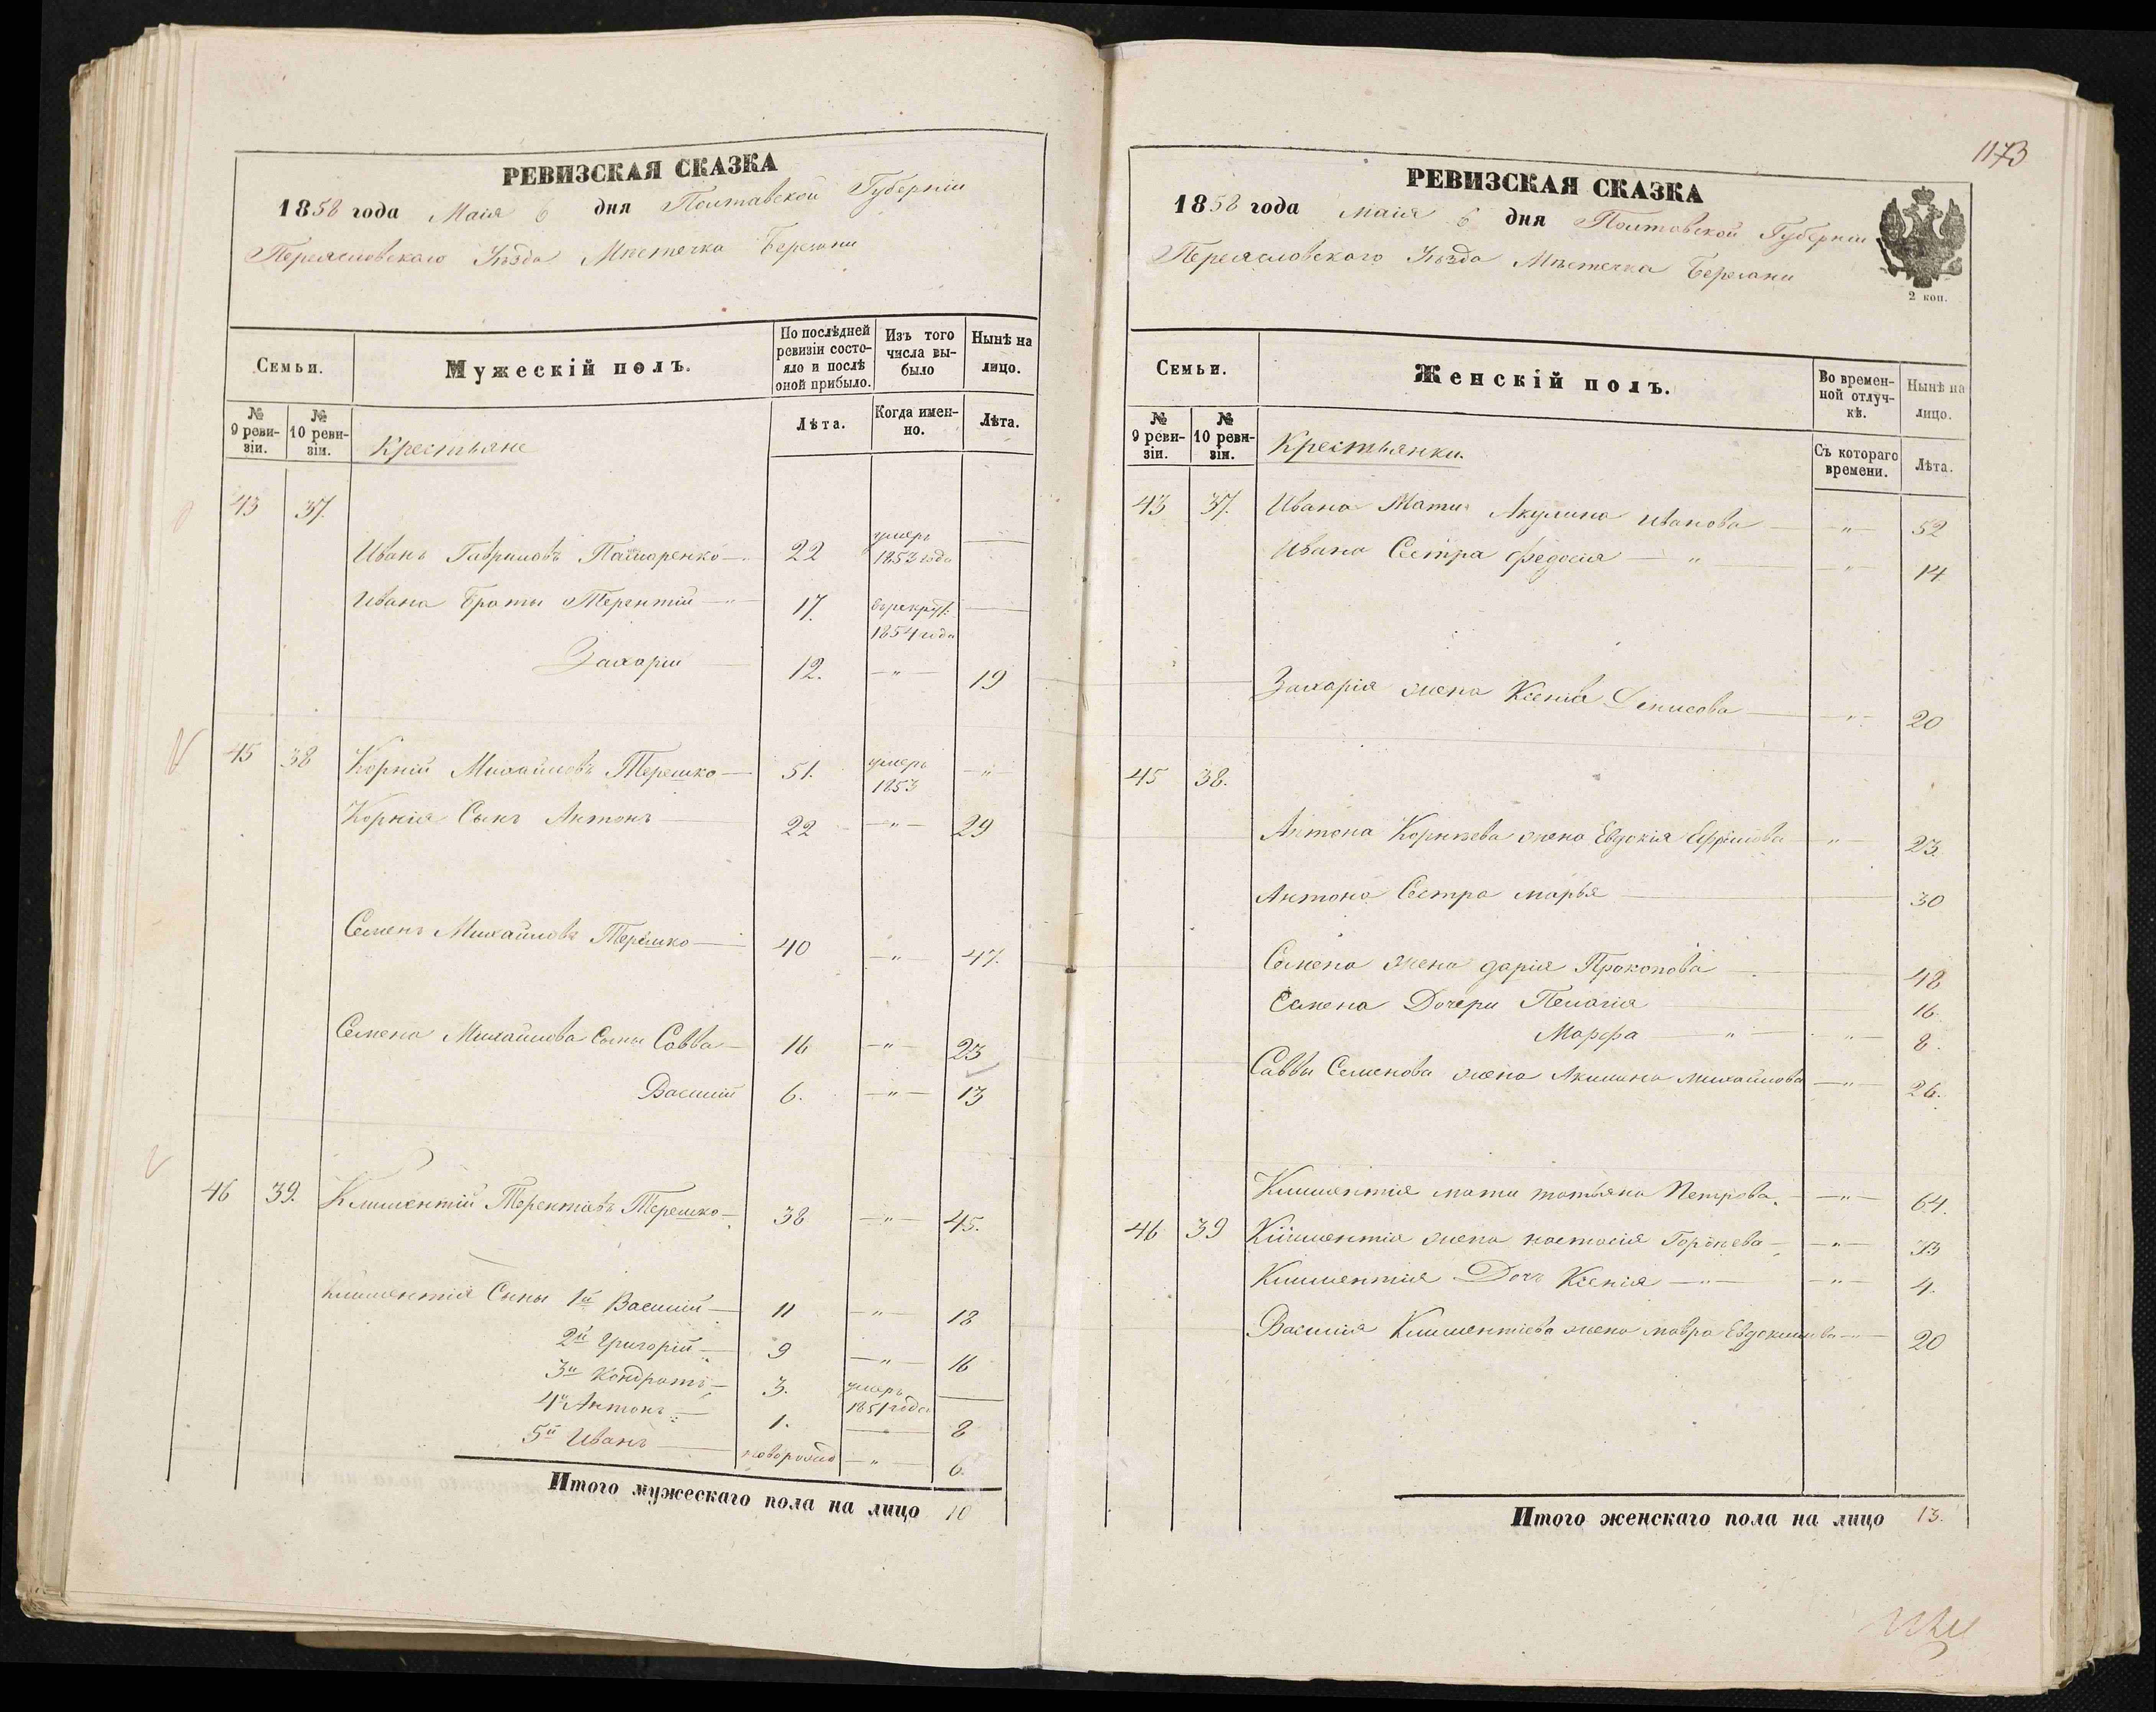 РЕВИЗСКАЯ СКАЗКА
1858 года Маія 6 дня Полтавской Губерніи
Переясловского Уѣзда Мѣстечка Березани
Семьи.
Мужескій полъ.
По послѣдней ревизіи состояло и послѣ оной прибыло.
Изъ того числа выбыло
Нынѣ на лицо.
№ 9 ревизіи.
№ 10 ревизіи.
Крестьяне
Лѣта.
Когда именно.
Лѣта.
43 37.
Иванъ Гавриловъ 22 умеръ 1853 года
Ивана Браты Терентій — " 17. 1854 года
Захарій 12. — " — 19
45 38 Корній Михайловъ Терешко — 51. умеръ 1853 — " —
Корнія Сынъ Антонъ 22 — " — 29
Семенъ Михайловъ Терешко — 40 — " 47.
Семена Михайлова Сыны Савва — 16 — " — 23
Василий 6. — " — 13
46 39. Климентій Терентіевъ Терешко — 38 — " — 45.
Климентія Сыны 1й Василий — 11 — " — 18
2й Григорій — 9 — " — 16
3й Кондратъ — 3. умеръ 1851 года
4й Антонъ — 1. 8
5й Иванъ новорожд — " — 6.
Итого мужескаго пола на лицо 10
1173
РЕВИЗСКАЯ СКАЗКА
1858 года маія 6 дня Полтовской Губерніи
Переясловского Уѣзда Мѣстечка Березани
2 коп.
Семьи.
Женскій полъ.
Во временной отлучкѣ.
Нынѣ на лицо.
№ 9 ревизіи.
№ 10 ревизіи.
Крестьянки.
Съ котораго времени.
Лѣта.
43 37. Ивана Мати Акулина Иванова — " — 52
Ивана Сестра Федосія — " — " — 14
Захарія жена Ксенія Денисова — " — 20
45 38.
Антона Корнѣева жена Евдокія — " — 23.
Антона Сестра марья 30
Семена жена дарія Прокопова 48
Семена Дочери Пелагія 16.
Марфа — " — " — 8.
Саввы Семенова жена Акилина михайлова — " — 26.
Климентія мати татьяна Петрова. — " — 64.
46 39 Климентія жена настасія — " — 33
Климентія Дочъ Ксенія — " — — " — 4.
Василия Климентіева жена мавра Евдокимова — " — 20
Итого женскаго пола на лицо 13.